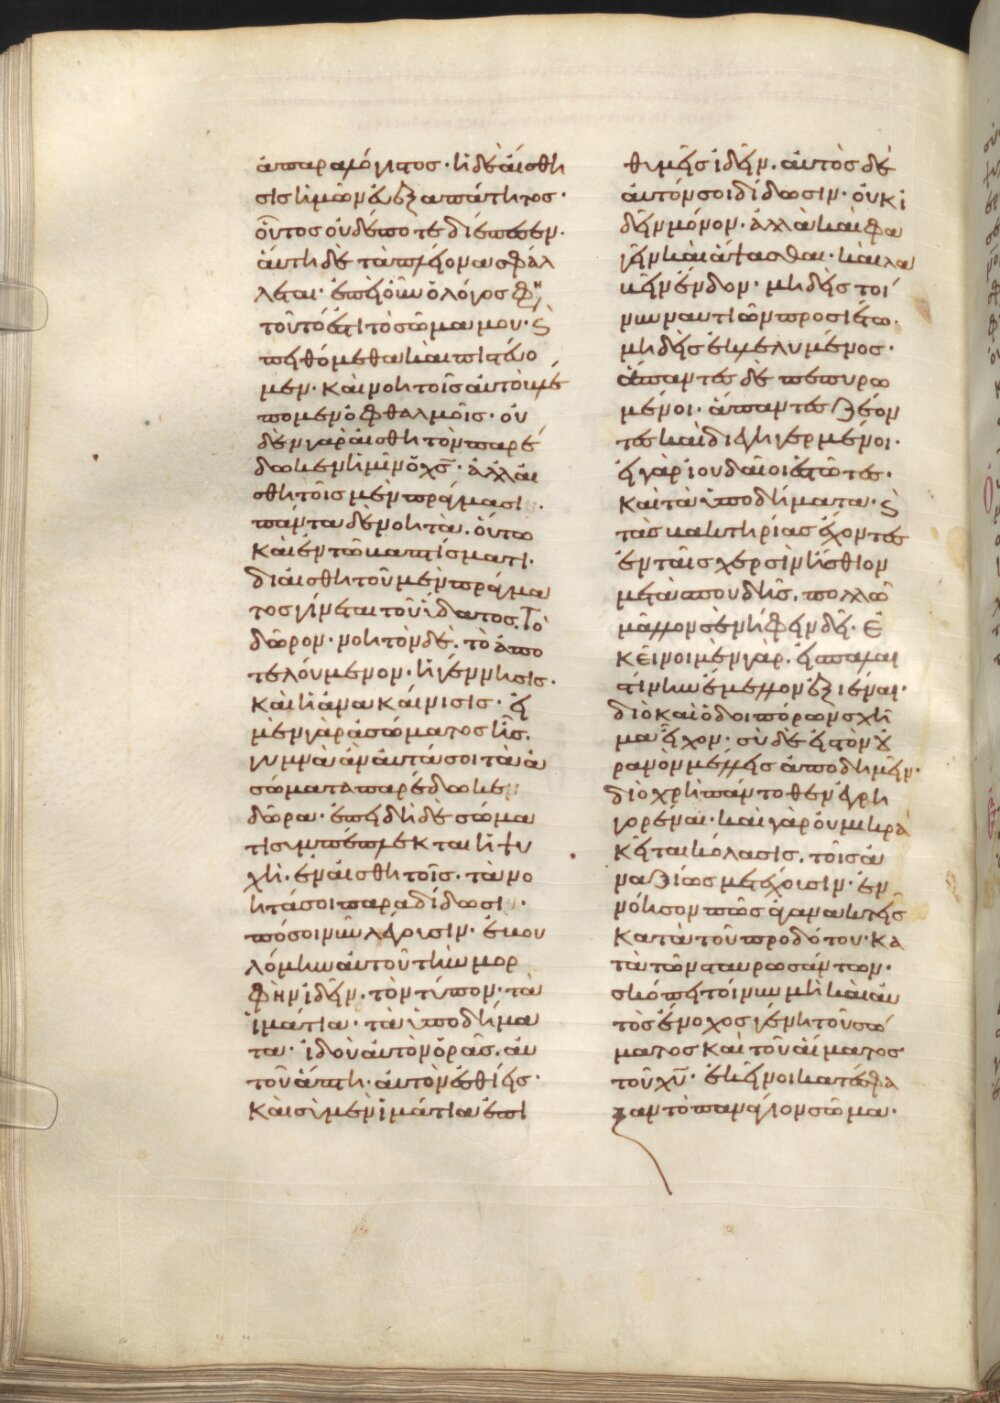 ἀπαραλόγιστος· ἡ δὲ αἴσθη
σις ἡμῶν εὐεξαπάτητος·
οὗτος οὐδέποτε διέπεσεν·
αὕτη δὲ τὰ πλείονα σφάλ
λεται· ἐπεὶ οὖν ὁ λόγος φη
τοῦτό ἐστι τὸ σῶμα μου· καὶ
πειθόμεθα καὶ πιστεύο
μεν· καὶ νοητοῖς αὐτὸ βλέ
πομεν ὀφθαλμοῖς· οὐ
δὲν γὰρ αἰσθητὸν παρέ
δωκεν ἡμῖν ὁ χς· ἀλλ' αἰ
σθητοῖς μὲν πράγμασι·
πάντα δὲ νοητά· οὕτω
καὶ ἐν τῷ βαπτίσματι·
δι' αἰσθητοῦ μὲν πράγμα
τος γίνεται τοῦ ὕδατος. τὸ
δῶρον· νοητὸν δὲ. τὸ ἀπο
τελούμενον· ἡ γέννησις·
καὶ ἡ ἀνακαίνισις· εἰ
μὲν γὰρ ἀσώματος ἦς.
γυμνὰ ἂν αὐτά σοι τὰ ἀ
σώματα παρέδωκεν
δῶρα· ἐπειδὴ δὲ σώμα
τι συμπέπλεκται ἡ ψυ
χή· ἐν αἰσθητοῖς· τὰ νο
ητά σοι παραδίδωσι·
πόσοι νῦν λέγουσιν· ἐβου
λόμην αὐτοῦ τὴν μορ
φὴν ἰδεῖν. τὸν τύπον· τὰ
ἱμάτια· τὰ ὑποδήμα
τα· ἰδοὺ αὐτὸν ὁρᾶς. αὐ
τοῦ ἅπτη· αὐτὸν ἐσθίεις·
καὶ σὺ μὲν ἱμάτια ἐπι
θυμεῖς ἰδεῖν. αὐτὸς δὲ
ἑαυτόν σοι δίδωσιν· οὐκ ἰ
δεῖν μόνον· ἀλλὰ καὶ φα
γεῖν καὶ ἅψασθαι· καὶ λα
βεῖν ἔνδον· μηδεὶς τοί
νυν ναυτιῶν προσιέτω·
μηδεὶς ἐκλελυμένος·
ἅπαντες δὲ πεπυρω
μένοι· ἅπαντες ζέον
τες καὶ διεγηγερμένοι·
εἰ γὰρ ἰουδαῖοι ἑστῶτες·
καὶ τὰ ὑποδήματα· καὶ
τὰς βακτηρίας ἔχοντες
ἐν ταῖς χερσὶν ἤσθιον
μετὰ σπουδῆς. πολλῷ
μᾶλλον σὲ νήφειν δεῖ· ἐ
κεῖνοι μὲν γὰρ. εἰς παλαι
στίνην ἔμελλον ἐξιέναι·
διὸ καὶ ὁδοιπόρων σχῆ
μα εἶχον· σὺ δὲ εἰς τὸν οὐ
ρανὸν μέλλεις ἀποδημεῖν·
διὸ χρὴ πάντοθεν ἐγρη
γορέναι· καὶ γὰρ οὐ μικρὰ
κεῖται κόλασις. τοῖς ἀ
ναξίως μετέχουσιν· ἐν
νόησον πῶς ἀγανακτεῖς
κατὰ τοῦ προδότου· κα
τὰ τῶν σταυρωσάντων·
σκόπει τοίνυν μὴ καὶ αὐ
τὸς ἔνοχος γένη τοῦ σώ
ματος καὶ τοῦ αἵματος
τοῦ χυ· ἐκεῖνοι κατέσφα
ξαν τὸ παναγίον σῶμα·